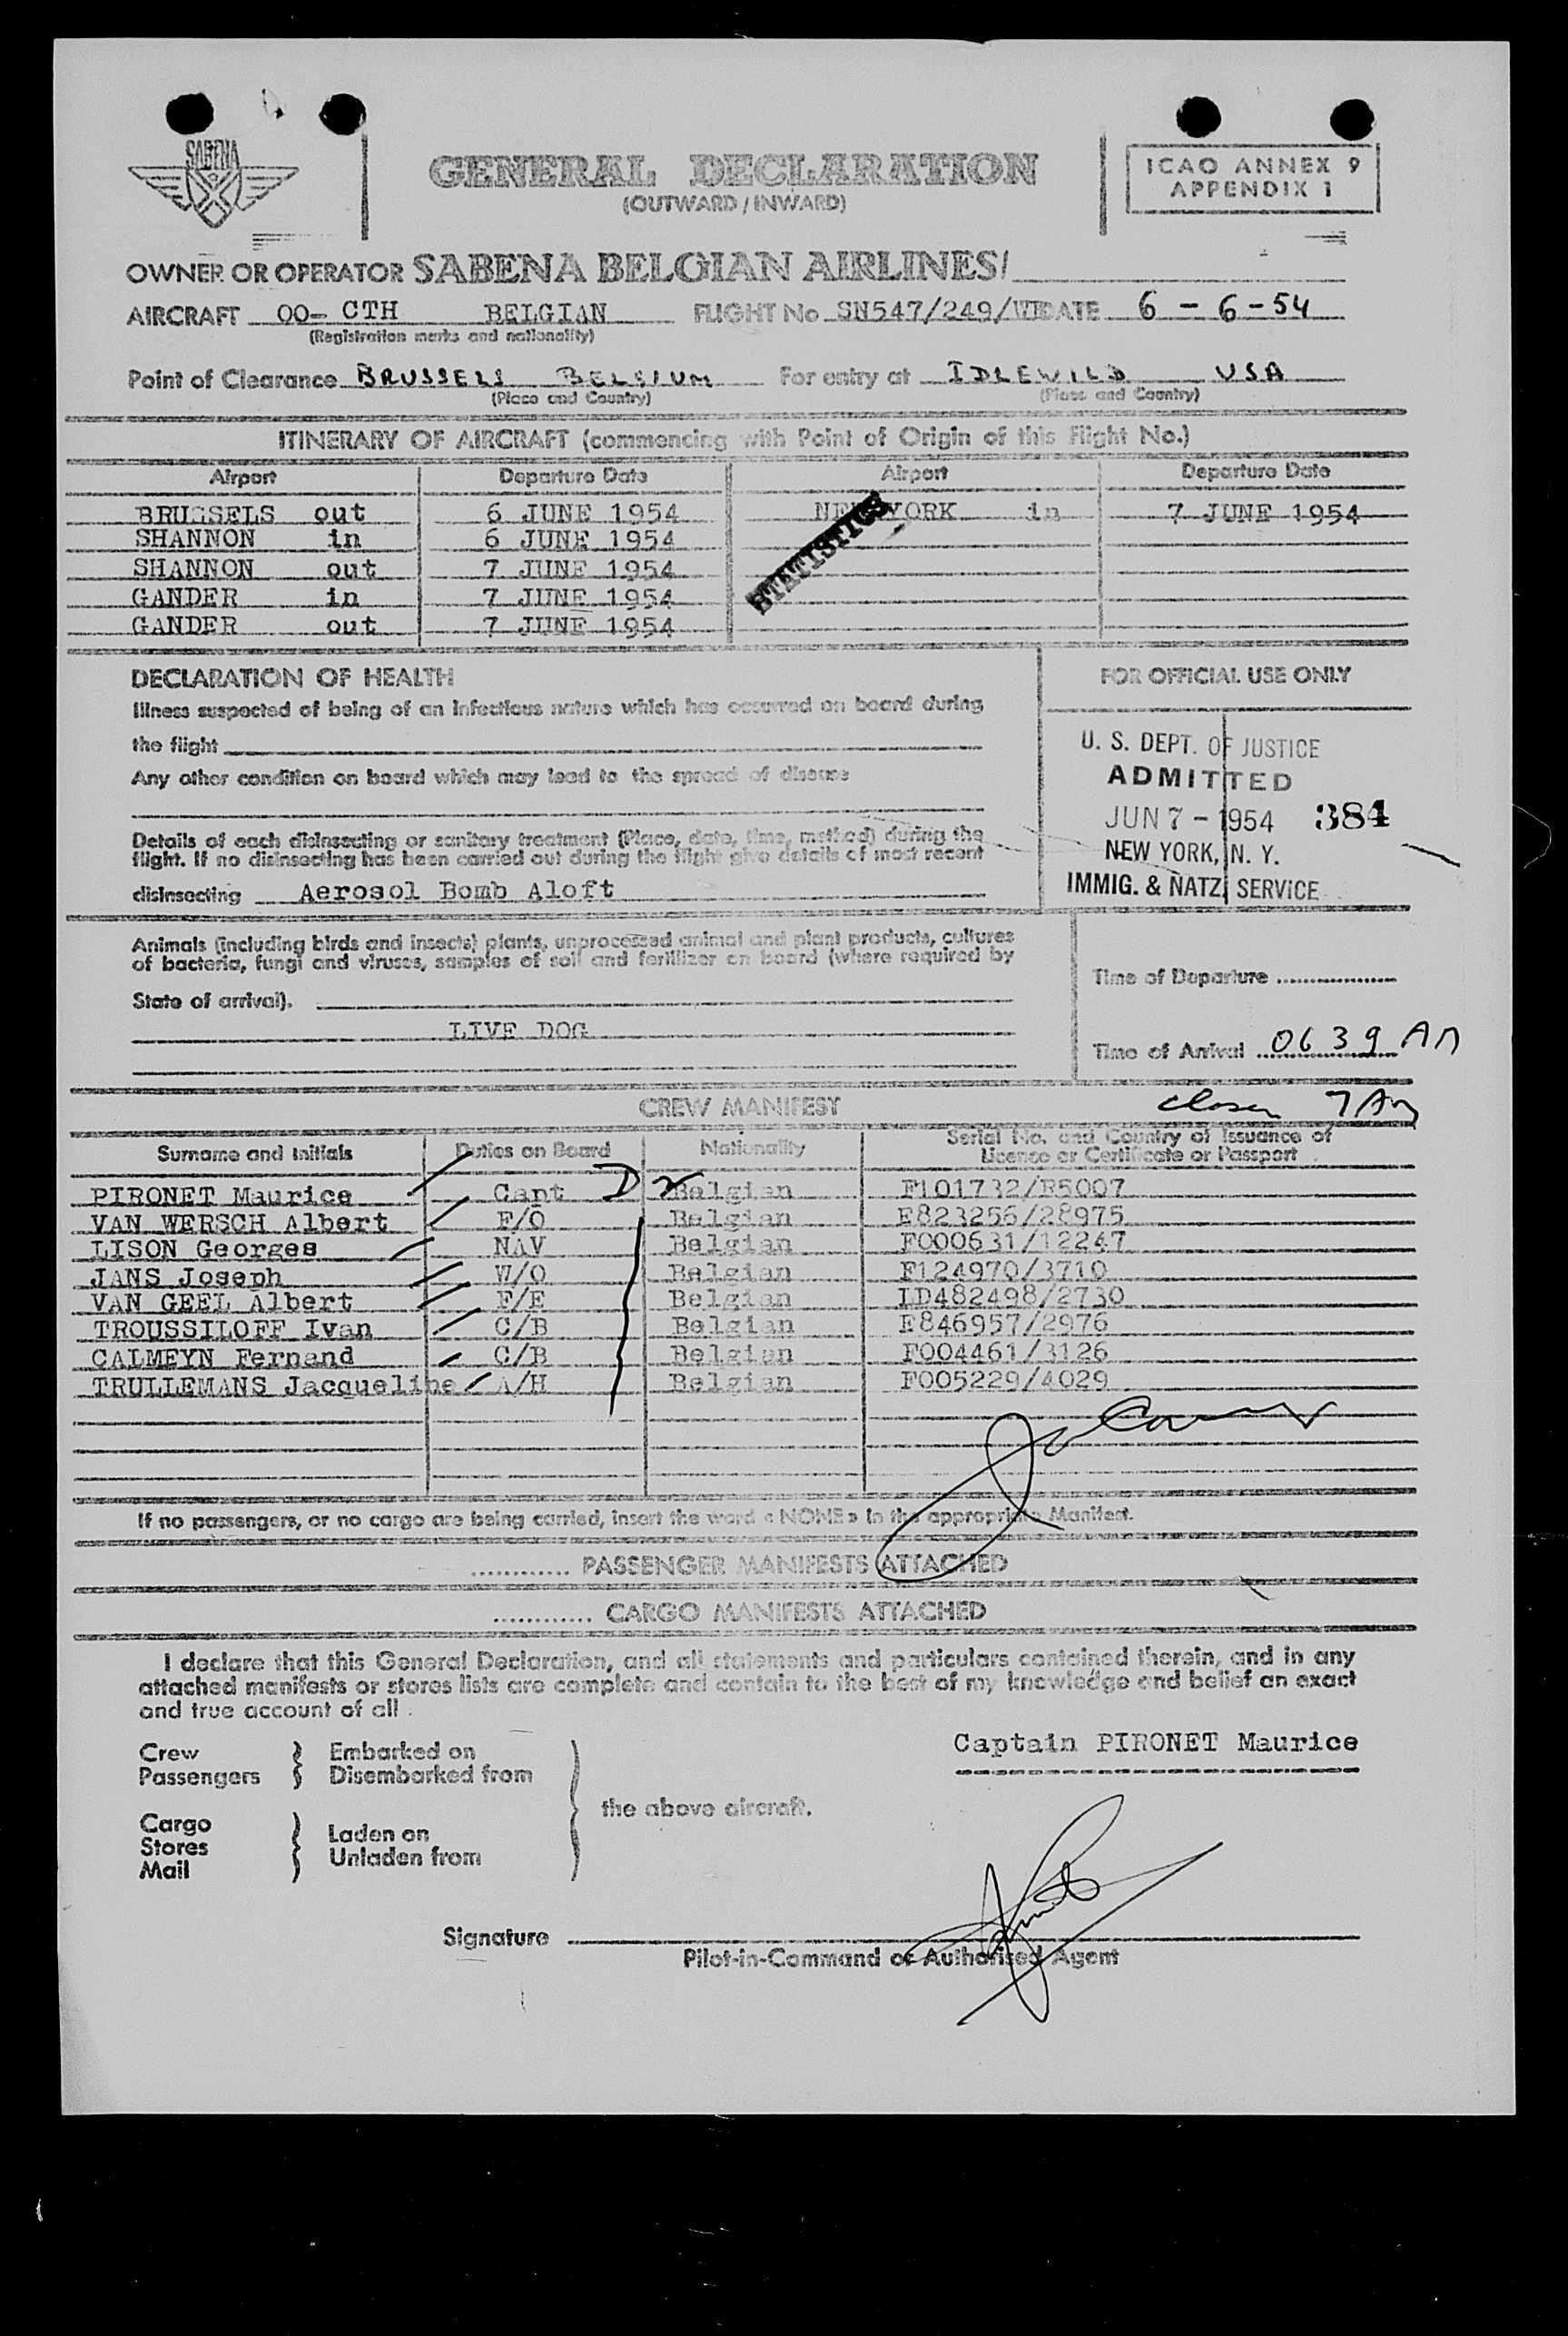 SABENA
GENERAL DECLARATION
(OUTWARD / INWARD)
ICAO ANNEX 9
APPENDIX 1
OWNER OR OPERATOR SABENA BELGIAN AIRLINES/
AIRCRAFT OO- CTH BELGIAN FLIGHT No SN547/249/ DATE 6 - 6 - 54
(Registration marks and nationality)
Point of Clearance BRUSSELS BELGIUM For entry at IDLEWILD USA
(Place and Country) (Place and Country)
ITINERARY OF AIRCRAFT (commencing with Point of Origin of this Flight No.)
Airport Departure Date Airport Departure Date
BRUSSELS out 6 JUNE 1954 NEW YORK in 7 JUNE 1954
SHANNON in 6 JUNE 1954
SHANNON out 7 JUNE 1954
GANDER in 7 JUNE 1954
GANDER out 7 JUNE 1954
STATISTICS
DECLARATION OF HEALTH
Illness suspected of being of an infectious nature which has occurred on board during
the flight
Any other condition on board which may lead to the spread of disease
Details of each disinsecting or sanitary treatment (Place, date, time, method) during the
flight. If no disinsecting has been carried out during the flight give details of most recent
disinsecting Aerosol Bomb Aloft
FOR OFFICIAL USE ONLY
U. S. DEPT. OF JUSTICE
ADMITTED
JUN 7 - 1954 384
NEW YORK, N. Y.
IMMIG. & NATZ. SERVICE
Animals (including birds and insects) plants, unprocessed animal and plant products, cultures
of bacteria, fungi and viruses, samples of soil and fertilizer on board (where required by
State of arrival).
LIVE DOG
Time of Departure
Time of Arrival 0639 AM
7 AM
CREW MANIFEST
Surname and Initials Duties on Board Nationality Serial No. and Country of Issuance of
Licence or Certificate or Passport
PIRONET Maurice Capt D Belgian F101732/B5007
VAN WERSCH Albert F/O Belgian E823256/28975
LISON Georges NAV Belgian F000631/12247
JANS Joseph W/O Belgian F124970/3710
VAN GEEL Albert F/E Belgian LD482498/2730
TROUSSILOFF Ivan C/B Belgian E846957/2976
CALMEYN Fernand C/B Belgian F004461/3126
TRULLEMANS Jacqueline A/H Belgian F005229/4029
If no passengers, or no cargo are being carried, insert the word « NONE » in the appropriate Manifest.
............ PASSENGER MANIFESTS ATTACHED
............ CARGO MANIFESTS ATTACHED
I declare that this General Declaration, and all statements and particulars contained therein, and in any
attached manifests or stores lists are complete and contain to the best of my knowledge and belief an exact
and true account of all.
Captain PIRONET Maurice
Crew Embarked on
Passengers Disembarked from
the above aircraft.
Cargo
Stores Laden on
Mail Unladen from
Signature
Pilot-in-Command or Authorised Agent